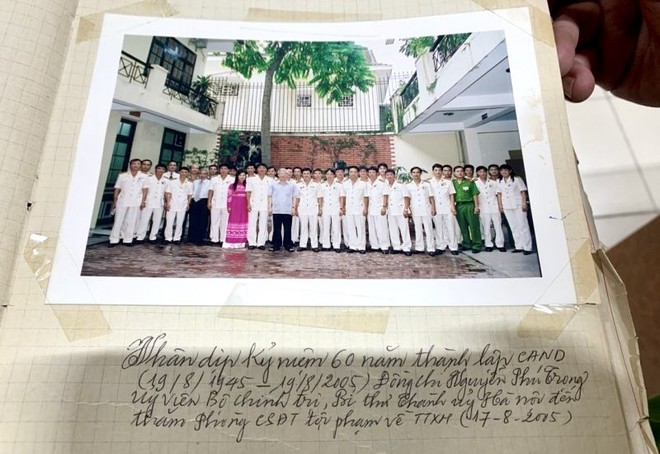 Nhân dịp Kỷ niệm 60 năm thành lập CAND
(19/8/1945 – 19/8/2005) Đồng chí Nguyễn Phú Trọng
Uỷ viên Bộ Chính trị, Bí thư Thành uỷ Hà nội đến
thăm Phòng CSĐT tội phạm về TTXH (17-8-2005)